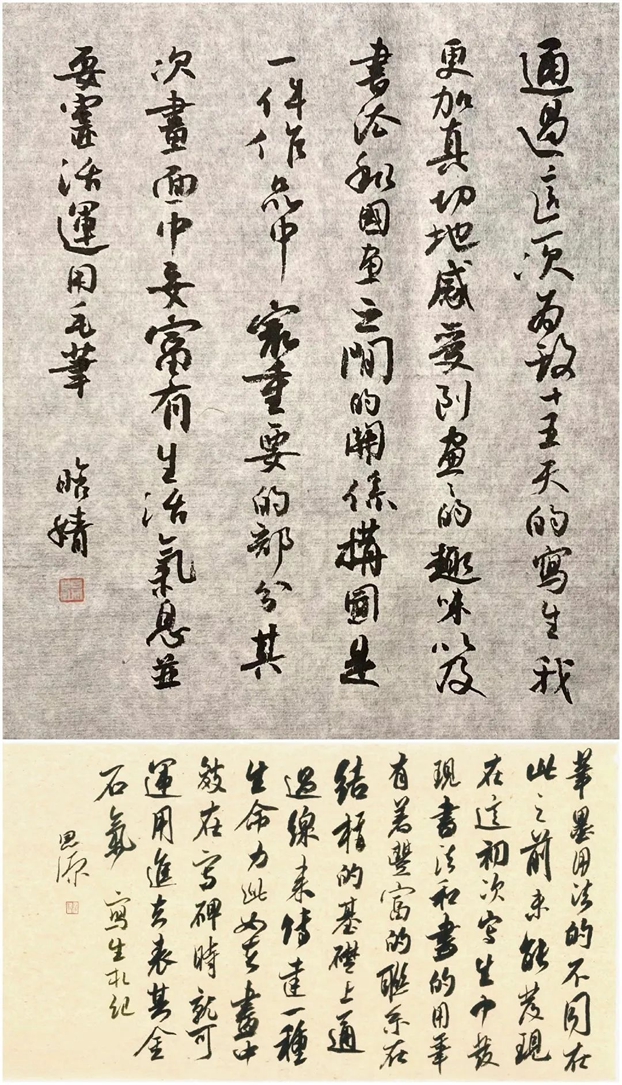 通過這一次為敀十五天的寫生我
更加真切地感受到畫畫的趣味以及
書法和國畫之間的關係構圖是
一件作品中寂重要的部分其
次畫面中要富有生活氣息並
要靈活運用毛筆
晗婧
筆墨用法的不同在
此之前未能發現
在這初次寫生中發
現書法和畫的用筆
有着豐富的聯系在
結構的基礎上通
過線來傳達一種
生命力此如在畫中
敍在寫碑時就可
運用進去表其金
石氣 寫生札紀
思源